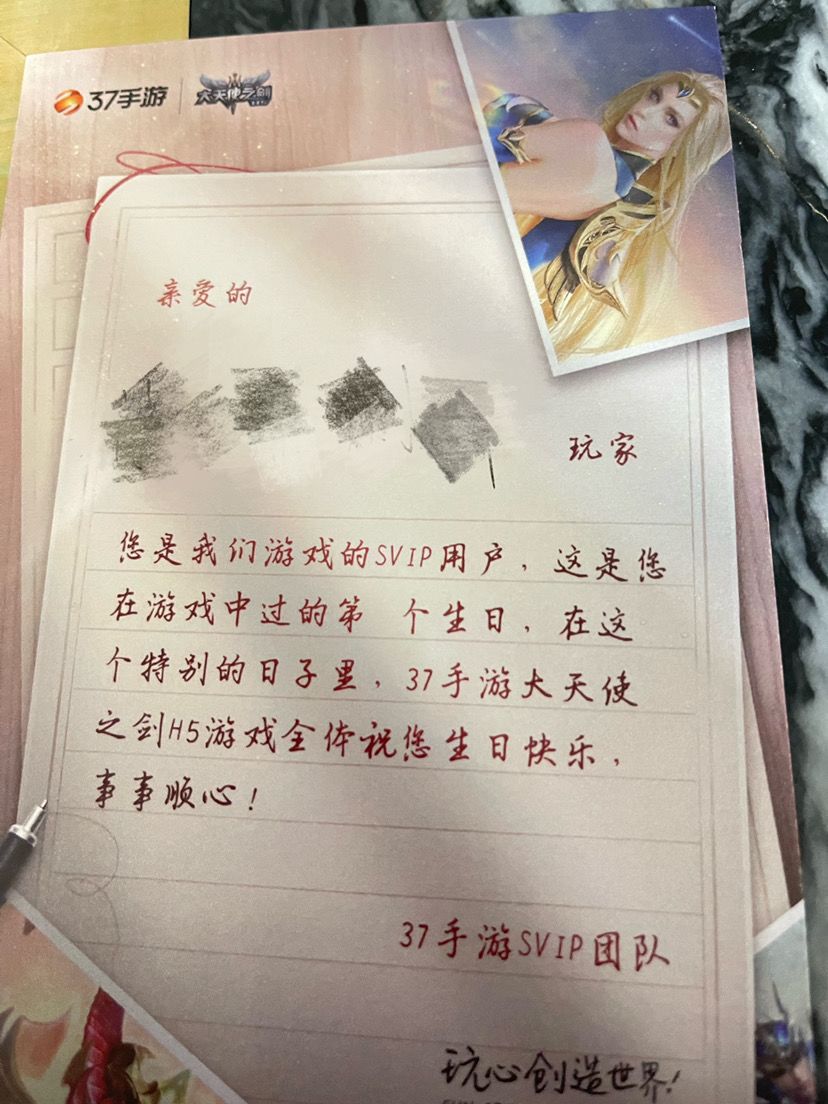 37手游 大天使之剑
亲爱的
玩家
您是我们游戏的SVIP用户，这是您
在游戏中过的第 个生日，在这
个特别的日子里，37手游大天使
之剑H5游戏全体祝您生日快乐，
事事顺心！
37手游SVIP团队
玩心创造世界！